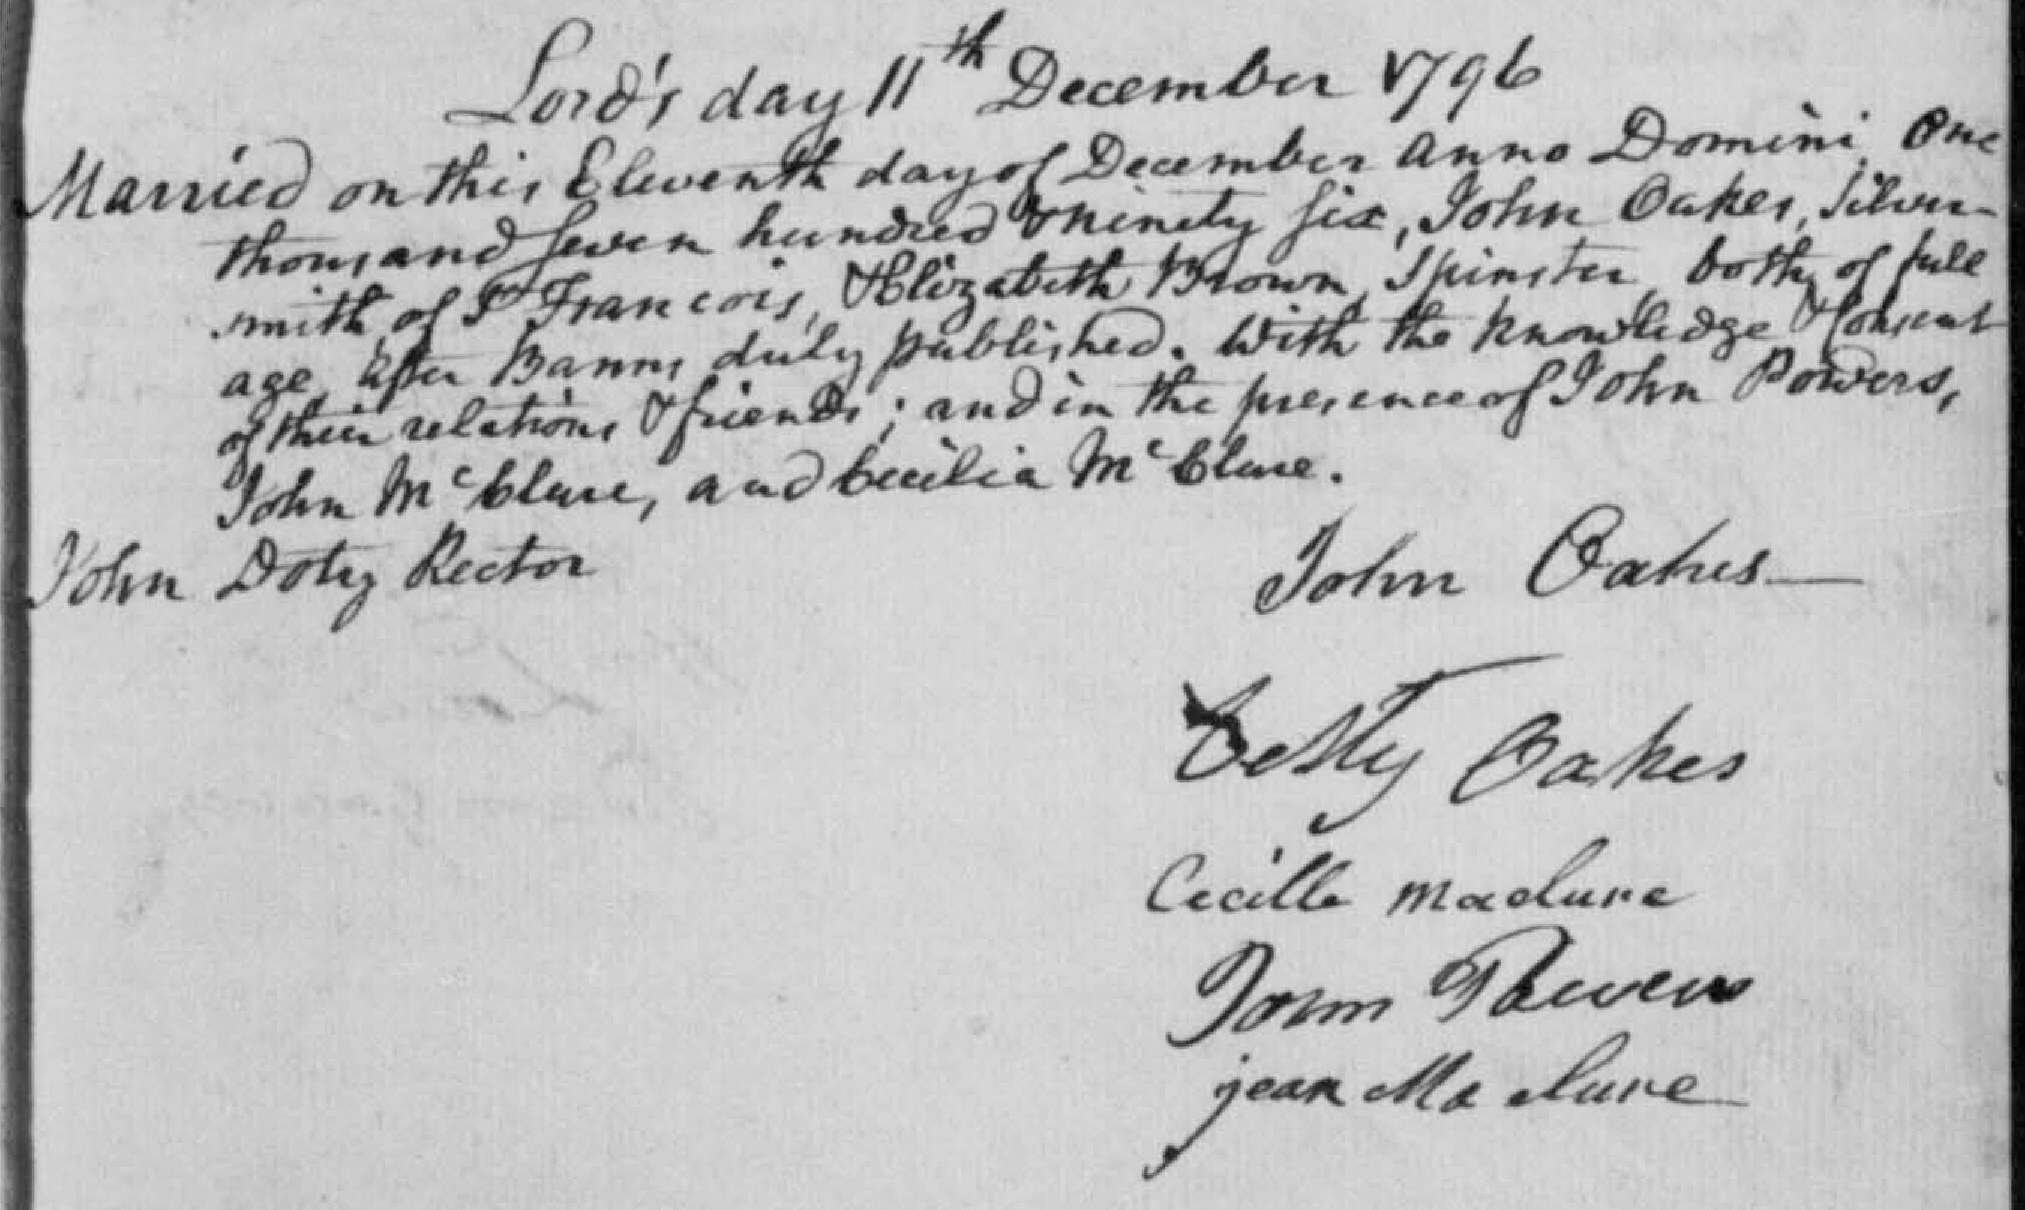 Lord's day 11th December 1796
Married on this Eleventh day of December Anno Domini, One
thousand seven hundred & ninety six, John Oakes, Silver-
smith, of St Francois, & Elizabeth Brown, Spinster, both of full
age, after Banns duly published. With the knowledge & Consent
of their relations & friends; and in the presence of John Powers,
John McClure, and Cecilia McClure.
John Doty Rector
John Oakes
Betty Oakes
Cecille maclure
John Powers
jean Maclure